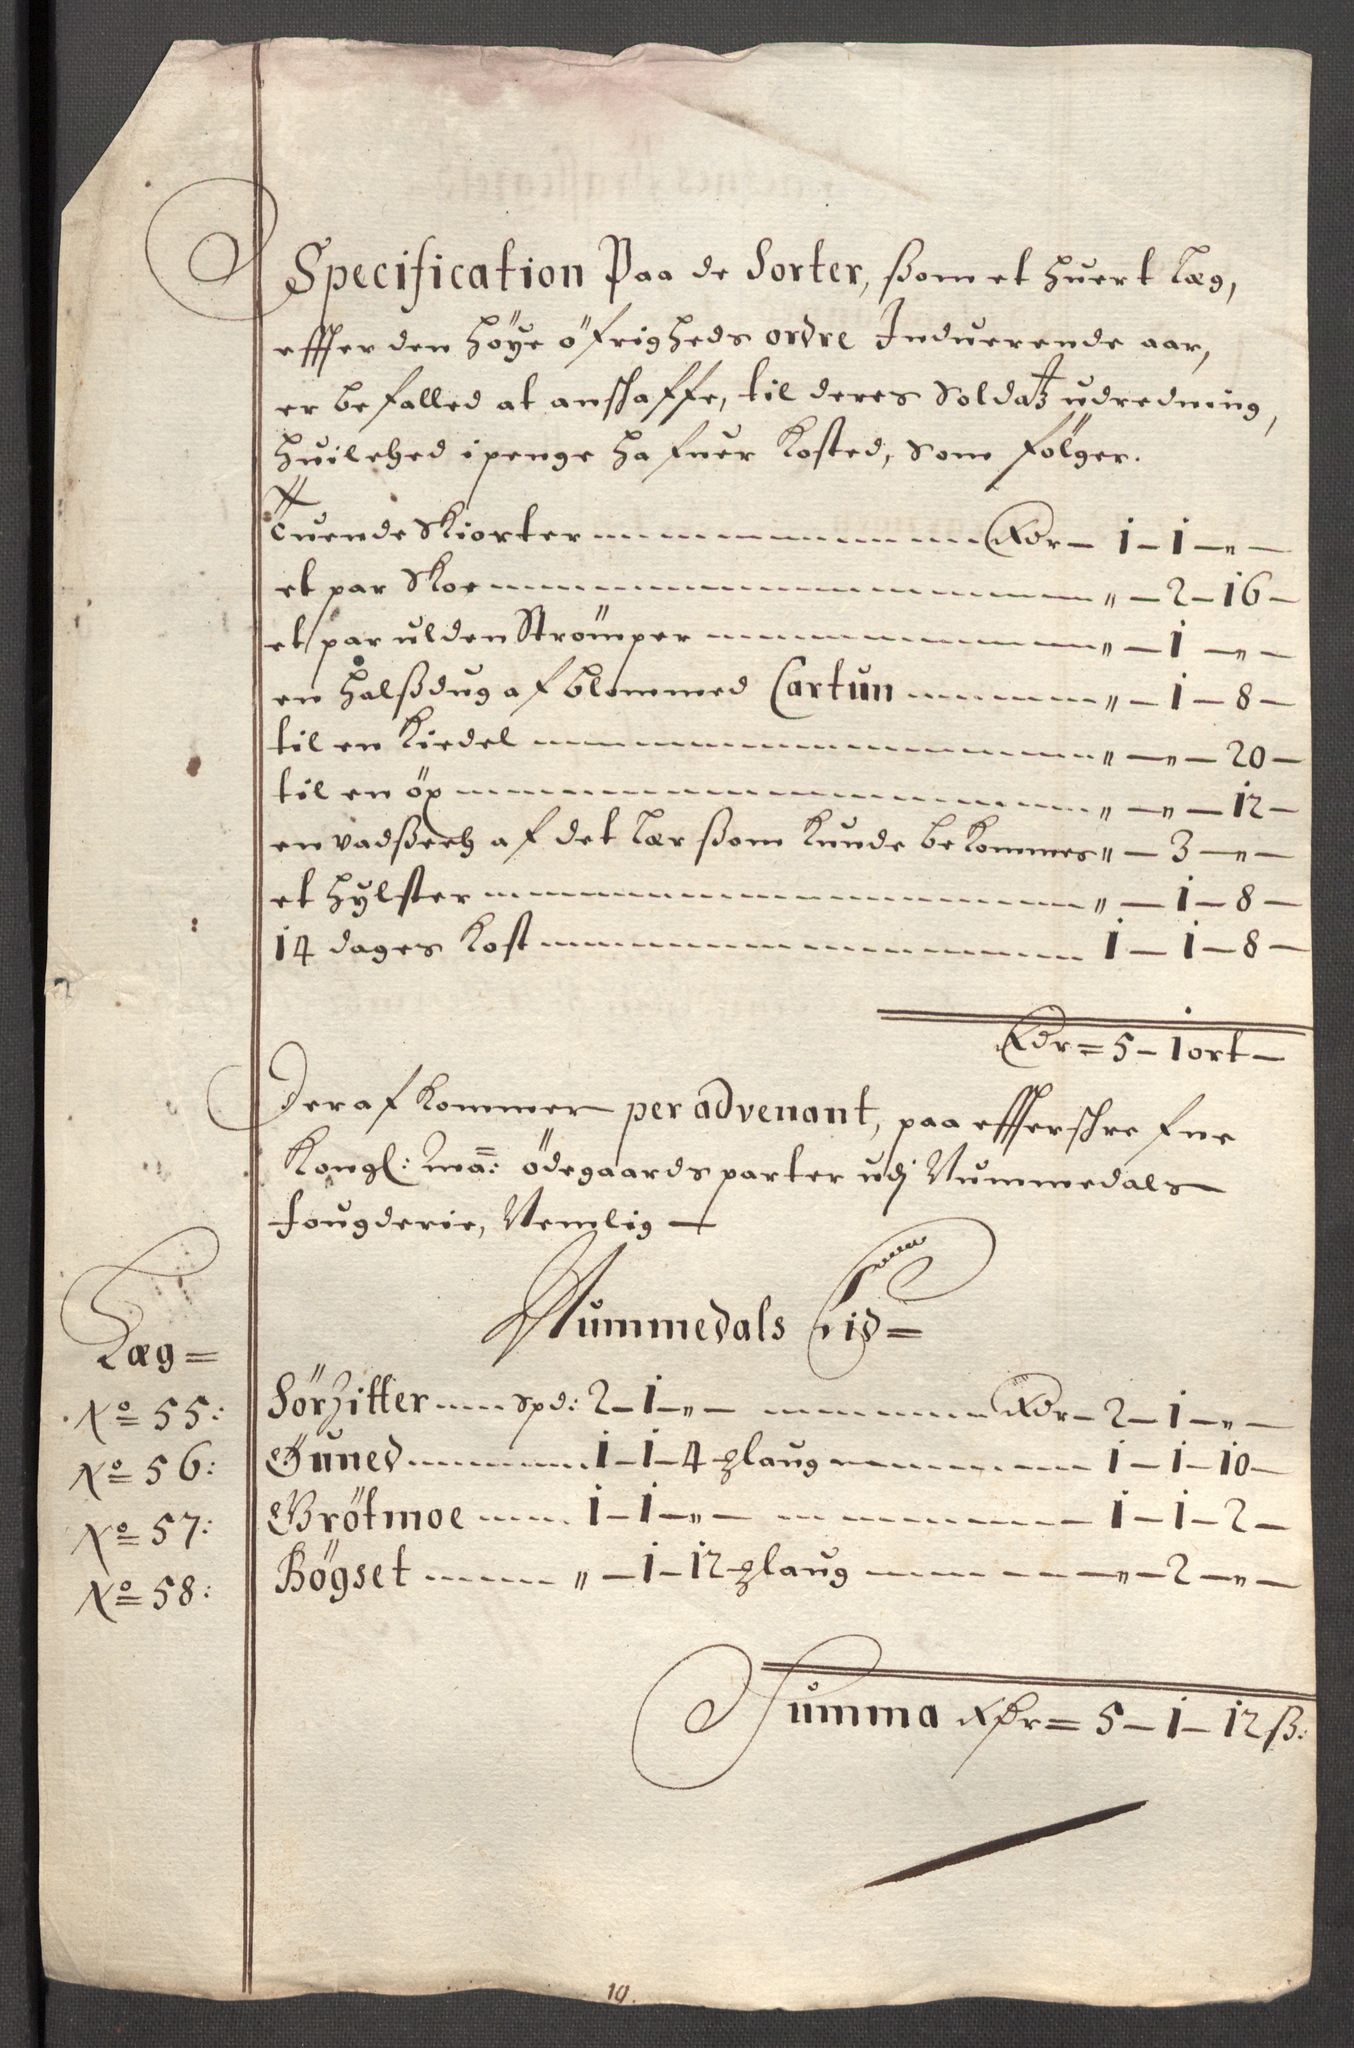 Specification Paa de Sorter, ßom et huert Læg,
effter den høye øfrigheds ordre Induerende aar,
er befalled at anschaffe, til deres Soldatz udredning,
huilched i penge hafuer Kosted, som følger.
Tuende Skiorter Rdr – 1 – 1 – „ –
et par Skoe „ – 2 – 16 –
et par ulden Strømper „ – 1 – „ –
en halßdug af blommed Cartun „ – 1 – 8 –
til en Kiedel „ – „ – 20 –
til en øx „ – „ – 12 –
en vadßech af det Lær ßom Kunde bekommes „ – 3 – „ –
et hylster „ – 1 – 8 –
14 dages Kost 1 – 1 – 8 –
Rdr = 5 – 1 ort –
Deraf kommer per advenant, paa efftterschrefne
Kongl: Ma: ødegaards parter udj Nummedals
fougderie, Nemlig –
Nummedals
Læg =
No 55: Sørzitter Spd: 2 – 1 – „ – Rdr – 2 – 1 – „ –
No 56: Duned 1 – 1 – 4 – laug 1 – 1 – 10 –
No 57: Brøtmoe 1 – 1 – „ – 1 – 1 – 2 –
No 58: Bøgset „ – 1 – 12 laug „ – 2 – „ –
Summa Rdr = 5 – 1 – 12 ß:
19.